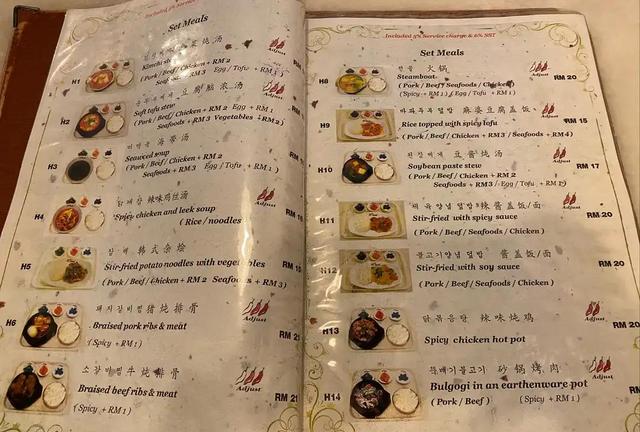 Included 5% Service
Set Meals
H1
Kimchi
(Pork / Beef / Chicken + RM 2
Seafoods + RM 3 Egg / Tofu + RM 1)
Adjust
H2
Soft tofu stew
(Pork / Beef / Chicken + RM 2 Egg + RM 1
Seafoods + RM 3 Vegetables + RM 2)
Adjust
海带汤
H3
Seaweed soup
(Pork / Beef / Chicken + RM 2
Seafoods + RM 3 Egg / Tofu + RM 1)
닭개장 辣味鸡丝汤
H4
Spicy chicken and leek soup
(Rice / noodles)
Adjust
RM 16
잡채 韩式杂烩
H5
Stir-fried potato noodles with vegetables
RM 15
(Pork / Beef / Chicken + RM 2 Seafoods + RM 3)
돼지갈비찜 猪炖排骨
H6
Braised pork ribs & meat
(Spicy + RM 1)
Adjust
RM 21
소갈비찜 牛炖排骨
H7
Braised beef ribs & meat
(Spicy + RM 1)
Adjust
RM 21
Included 5% Service charge & 6% SST
Set Meals
전골 火锅
H8
Steamboat
(Pork / Beef / Seafoods / Chicken)
(Spicy + RM 1) (Egg / Tofu + RM 1)
Adjust
RM 20
마파두부덮밥 麻婆豆腐盖饭
H9
Rice topped with spicy tofu
(Pork / Beef / Chicken + RM 3 / Seafoods + RM 4)
Adjust
RM 15
된장찌개 豆酱炖汤
H10
Soybean paste stew
(Pork / Beef / Chicken + RM 2
Seafoods + RM 3 / Egg / Tofu + RM 1)
Adjust
RM 17
제육양념덮밥 辣酱盖饭/面
H11
Stir-fried with spicy sauce
(Pork / Beef / Seafoods / Chicken)
Adjust
RM 20
불고기양념덮밥 酱盖饭/面
H12
Stir-fried with soy sauce
(Pork / Beef / Seafoods / Chicken)
RM 20
닭볶음탕 辣味炖鸡
H13
Spicy chicken hot pot
Adjust
RM 20
뚝배기불고기 砂锅烤肉
H14
Bulgogi in an earthenware pot
(Pork / Beef) (Spicy + RM 1)
Adjust
RM